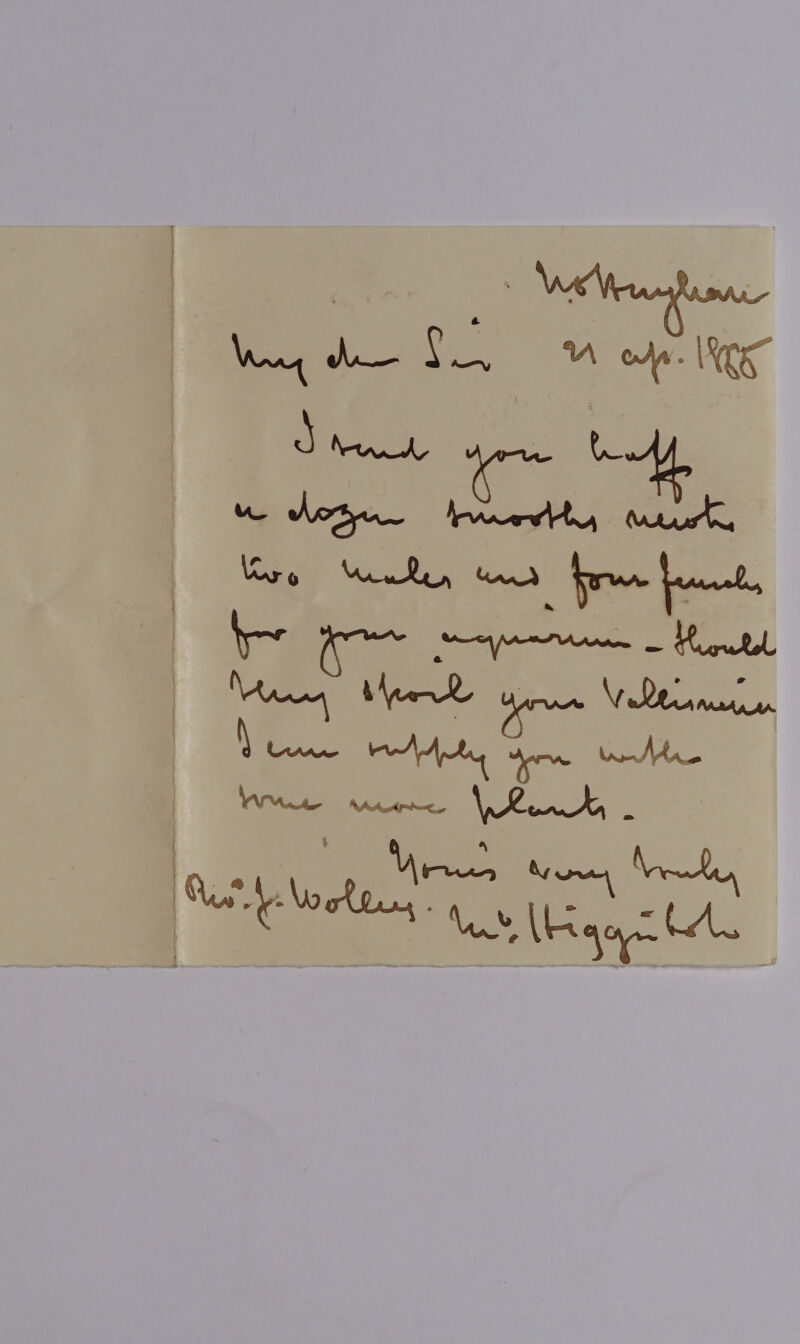 Nottingham
My dear Sir 21 Ap. 1855
I send you half
a dozen smooth newts
two males and four females
for your aquarium - Should
they spoil your Vallisneria
I can supply you with
some more plants.
Yours very truly
Revd. J. Wolley. Higginbottom